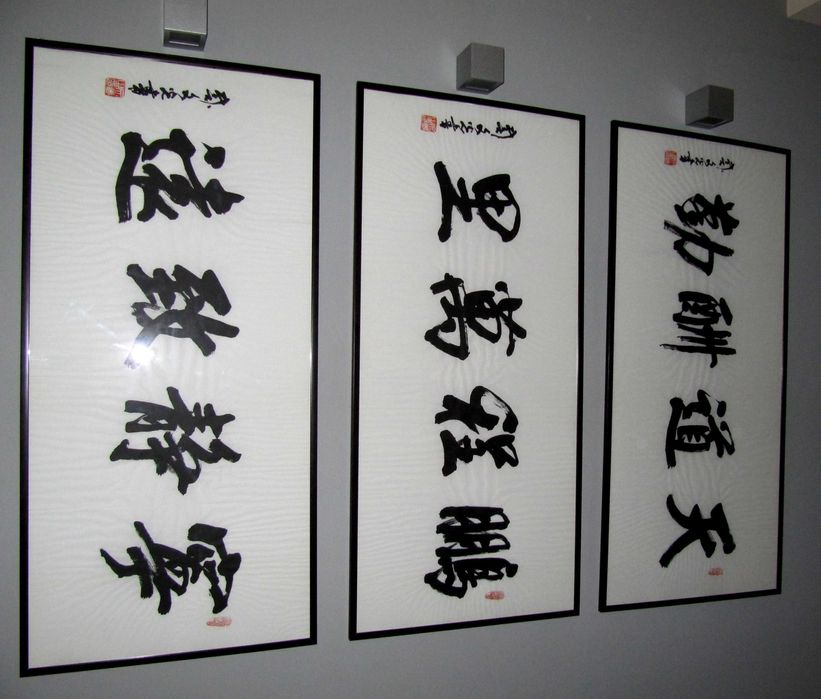 天道酬勤
鵬程萬里
寧靜致遠